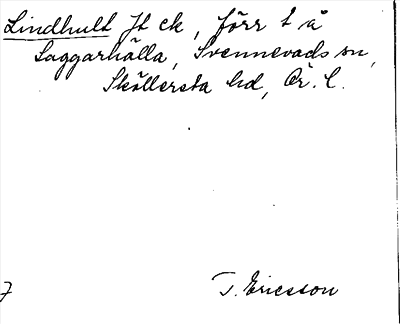 Lindhult Jt ck, förr t å
Saggarhälla, Svennevads sn,
Sköllersta hd, Ör. l.
7
T. Ericsson